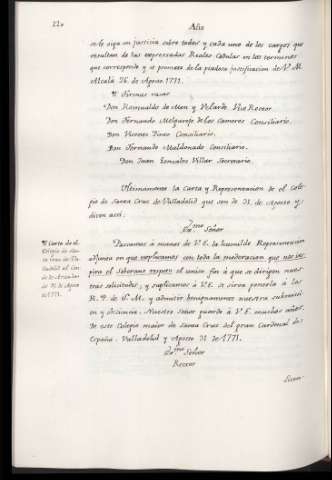 Año
se le oiga en justicia sobre todos y cada uno de los cargos que
resultan de las expresadas Reales Cedulas en los terminos
que corresponde y se promete de la piadosa justificacion de V. M.
Alcalá 26 de Agosto 1771.
Don Romualdo de Mon y Velarde Vice Rector
Don Fernando Melgarejo de los Cameros Consiliario.
Don Vicente Consiliario.
Don Fernando Maldonado Consiliario.
Don Juan Gonzalez Villar Secretario.
Ultimamente la Carta y Representacion de el Cole-
gio de Santa Cruz de Valladolid que son de 31 de Agosto y
dicen assi.
Señor
Carta de el
Colegio de San-
ta Cruz de Va-
lladolid al
de 31 de Agos-
to 1771.
Passamos à manos de V. E. la humilde Representacion
adjunta en que explicamos con toda la moderacion que nos ins-
pira el Soberano respeto el unico fin à que se dirigen nues-
tras solicitudes, y suplicamos à V. E. se sirva ponerla à los
R. P. de S. M. y admitir benignamente nuestra submissi-
on y obediencia. Nuestro Señor guarde à V. E. muchos años.
De este Colegio mayor de Santa Cruz del gran Cardenal de
España. Valladolid y Agosto 31 de 1771.
Señor
Rector